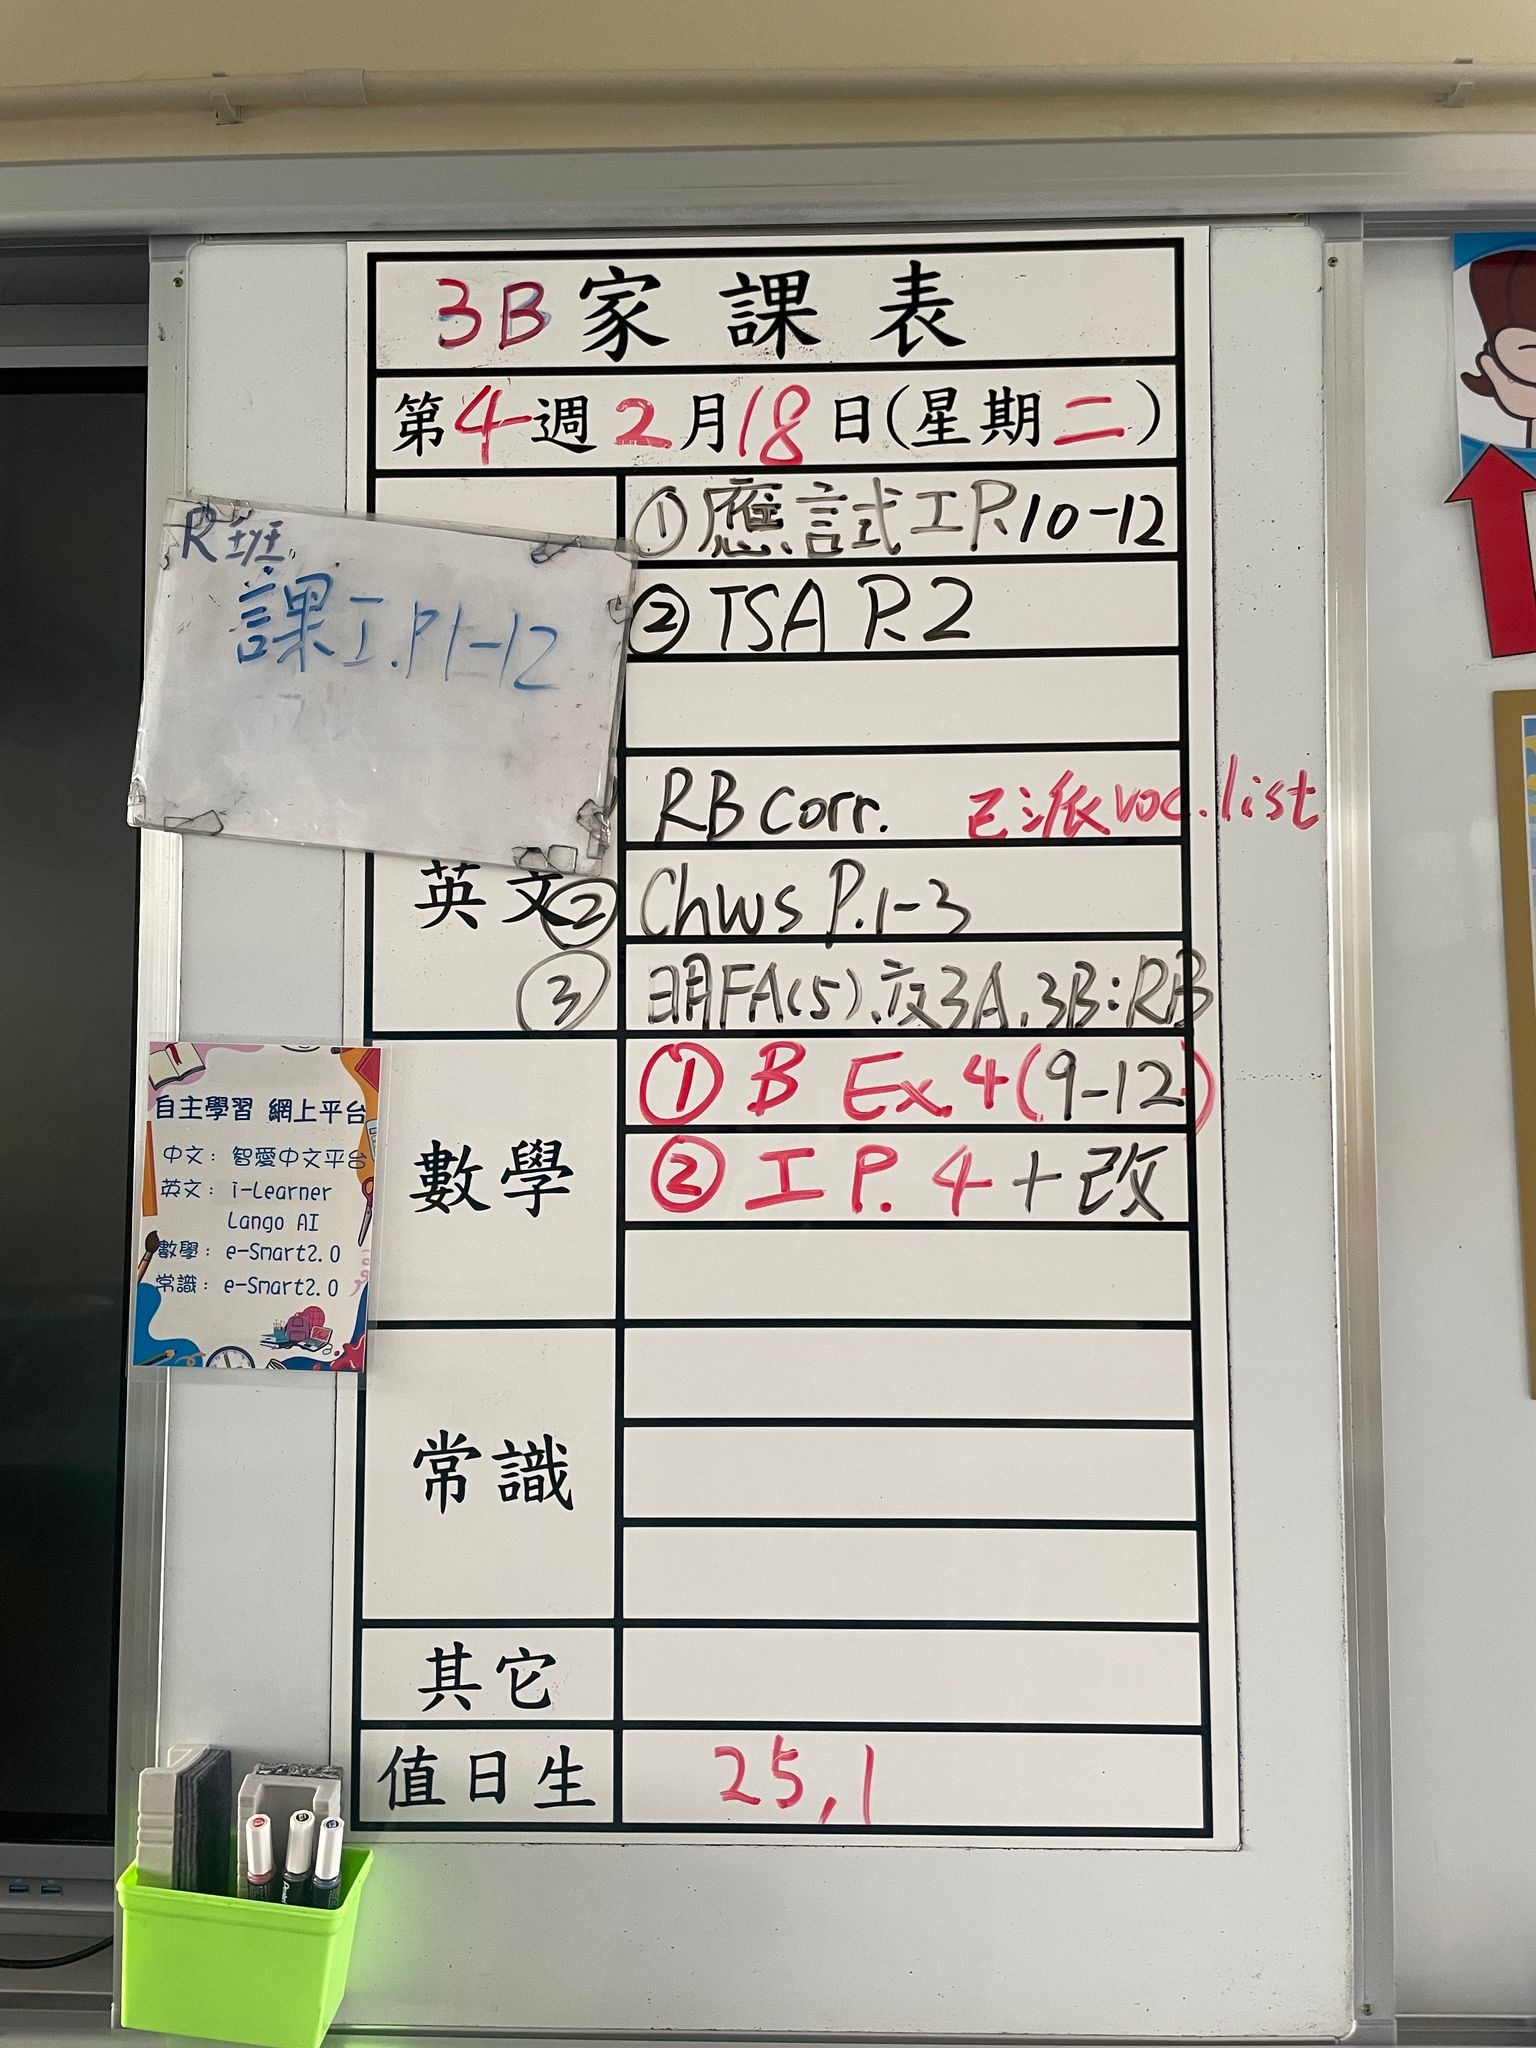 3B家課表
第4週2月18日(星期二)
R班
課工.P.1-12
①應試工P.10-12
②TSA P.2
RB corr. 已派voc.list
英文
② Chws P.1-3
③ 明FA(5)、交3A、3B:RB
數學
① B Ex.4(9-12)
② 工P.4+改
常識
其它
值日生
25,1
自主學習 網上平台
中文：智愛中文平台
英文：i-Learner
Lango AI
數學：e-Smart2.0
常識：e-Smart2.0